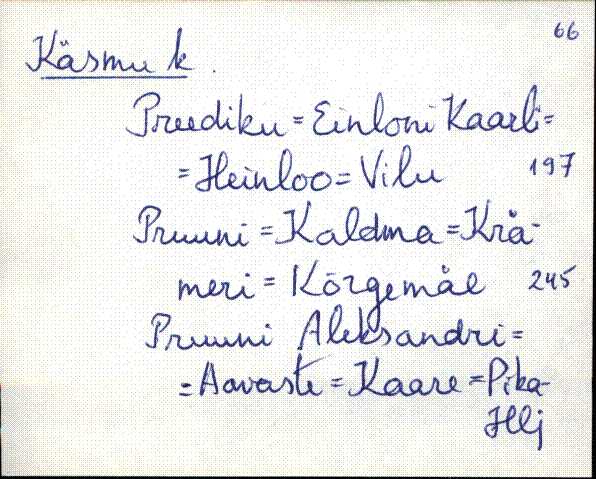 66
Käsmu k.
Preediku = Einloni Kaarli =
= Heinloo = Vilu 197
Pruuni = Kaldma = Krå-
meri = Kõrgemäe 245
Pruuni Aleksandri =
= Aavaste = Kaare = Pika-
Hlj